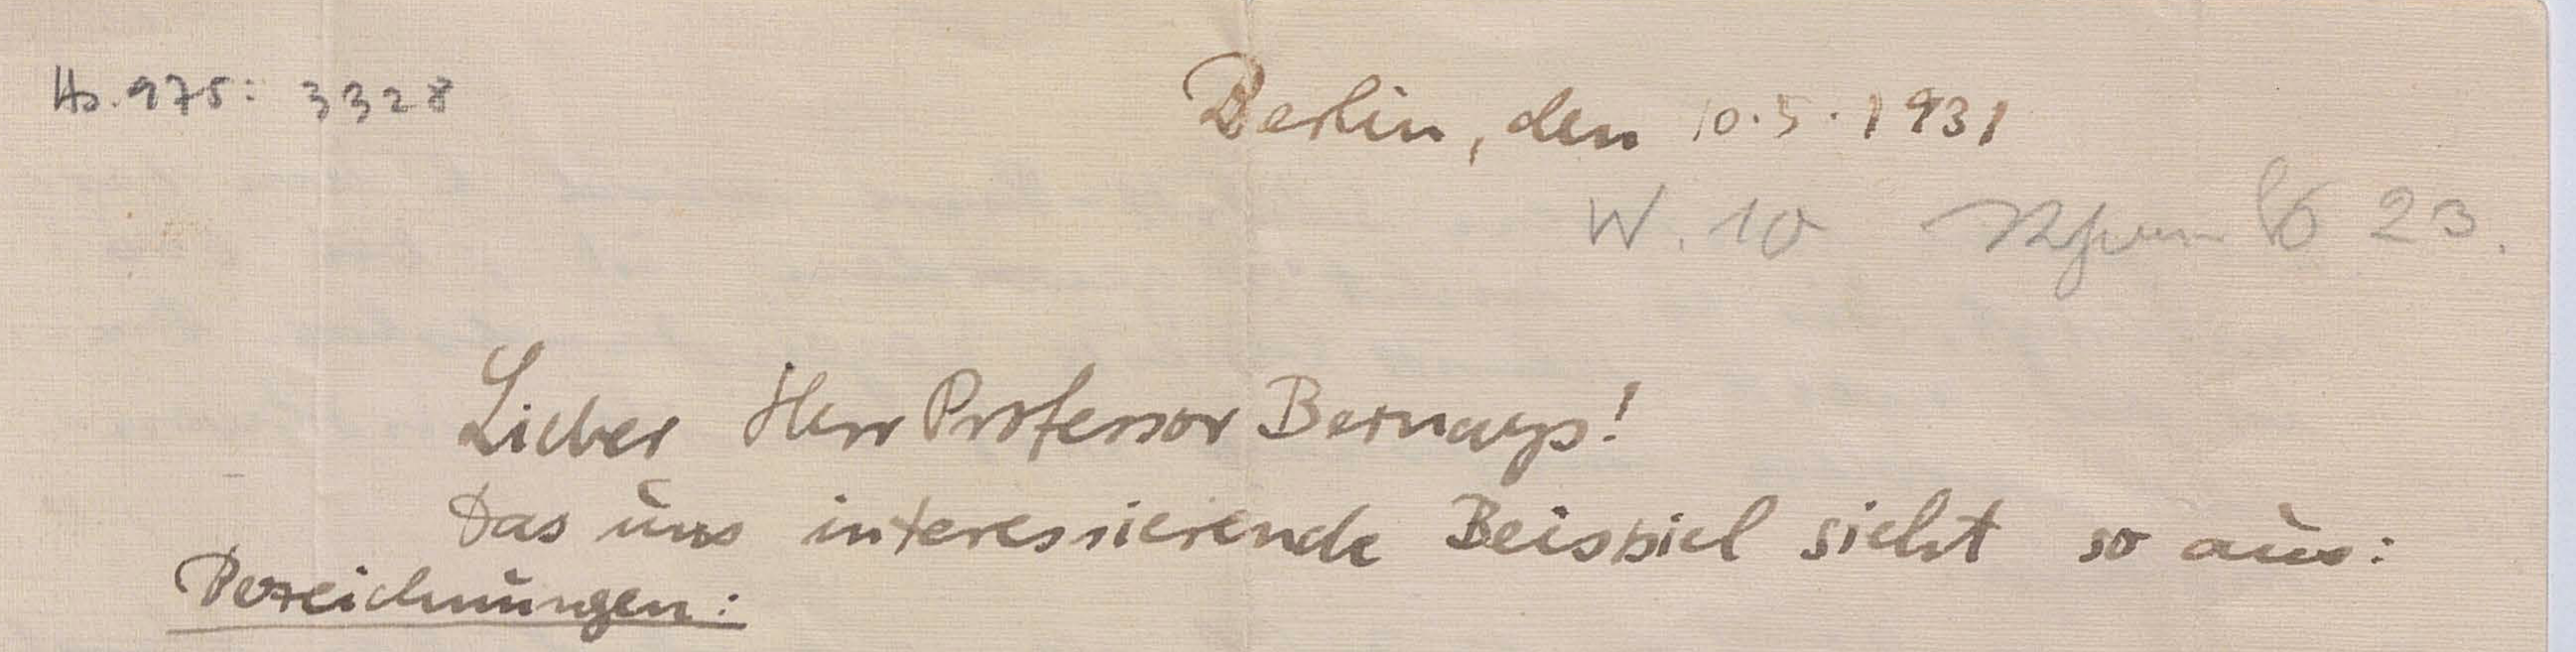 Hs. 975: 3328
Berlin, den 10.5.1931
W. 10 23.
Lieber Herr Professor Bernays!
Das uns interessierende Beispiel sieht so aus:
Bezeichnungen: